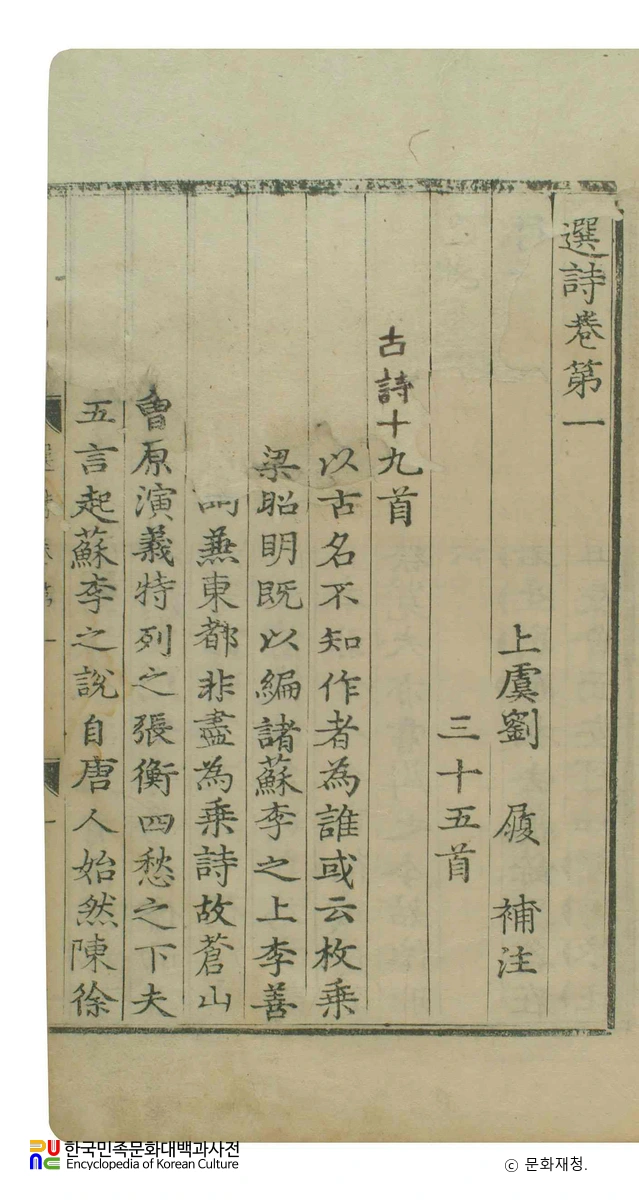 選詩卷第一
上虞劉 履 補注
三十五首
古詩十九首
以古名不知作者為誰或云枚乗
梁昭明既以編諸蘇李之上李善
兼東都非盡為乗詩故蒼山
曾原演義特列之張衡四愁之下夫
五言起蘇李之說自唐人始然陳徐
한국민족문화대백과사전
Encyclopedia of Korean Culture
© 문화재청.